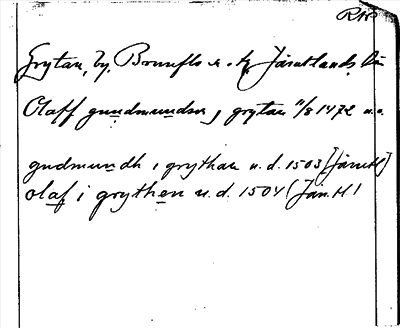 Grytan, by, Brunflo s. o. tg Jämtlands län
Olaff gundmundsn j grytan 11/8 1472 n.o.
gudmundh i grythan u.d. 1503 [JämtH]
olaf i grythen u.d. 1504 (Jäm.H)